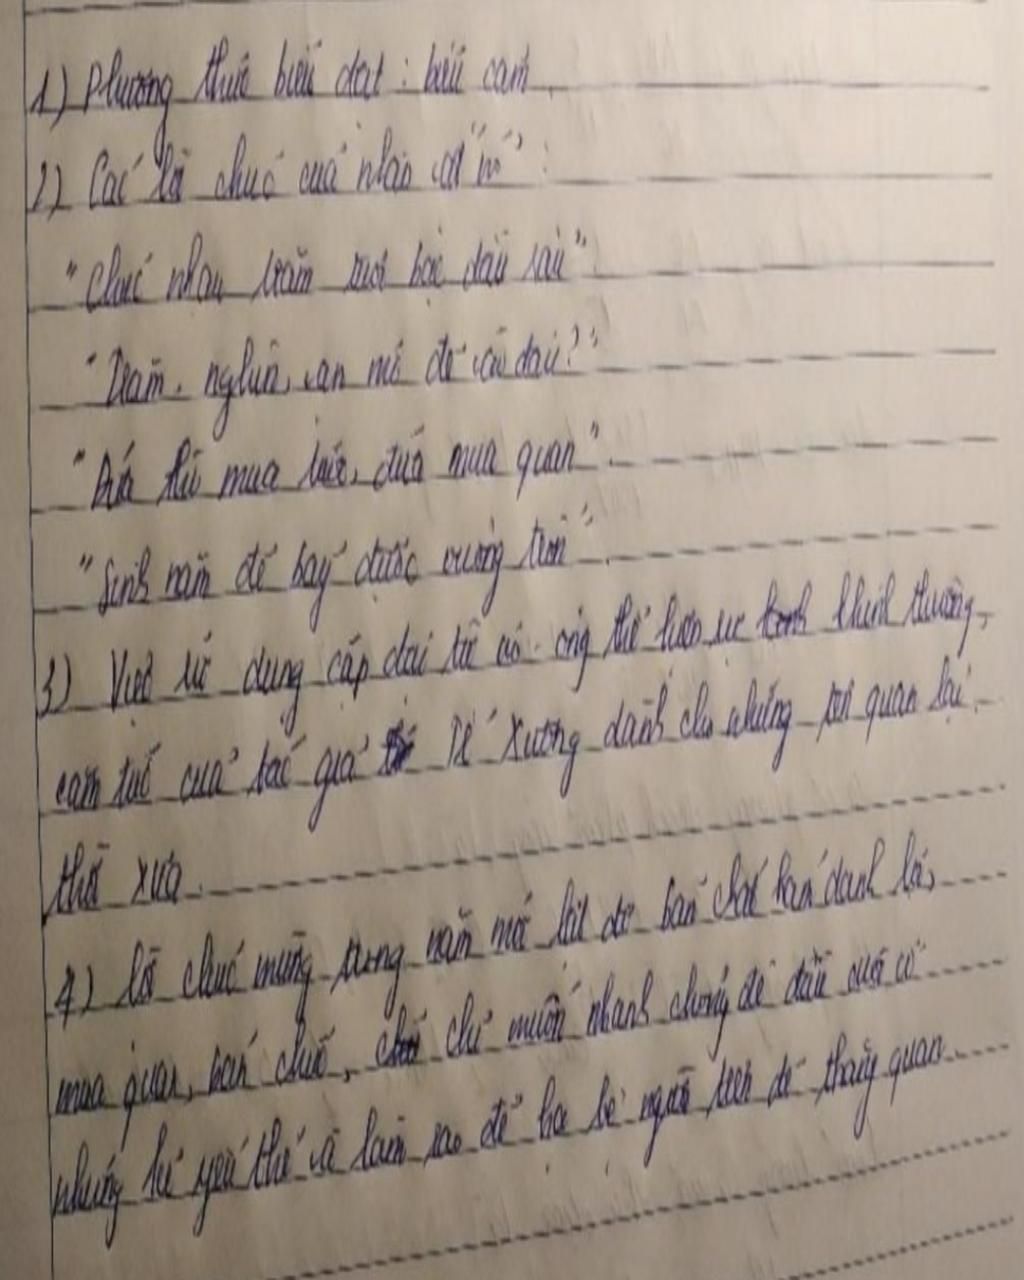 1) Phương thức biểu đạt : biểu cảm.
2) Các lời chúc của nhân vật "nó" :
"Chúc nhau trăm tuổi bạc đầu râu"
"Trăm, nghìn, vạn mớ để vào đâu?"
"Đứa thì mua tước, đứa mua quan"
"Sinh năm đẻ bảy được vuông tròn".
3) Việc sử dụng cặp đại từ nó - ông thể hiện sự khinh thường,
căm tức của tác giả Tế Xương dành cho những quan lại
thời xưa.
4) lời chúc mừng trong năm mới lại để bán danh lợi,
mua quan, bán chức, chỉ muốn nhanh chóng đè đầu cưỡi cổ
những kẻ yếu thế và làm sao để hạ bệ người trên để thăng quan